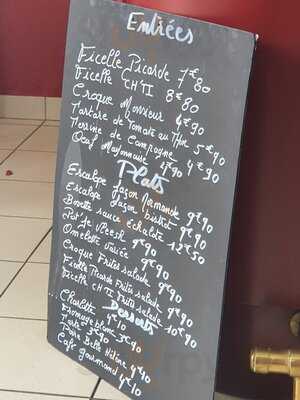 Entrées
Ficelle Picarde 7€80
Ficelle CH'TI 8€80
Croque Monsieur
Tartare de Tomate au Thon 5€90
Terrine de Campagne 4€90
Oeuf Mayonnaise
Plats
Escalope façon Normande 9€90
Escalope façon bistrot 9€90
Bavette sauce échalotte 12€50
Pot je vleesh 9€90
Omelette variée
Croque Frites salade 9€90
Ficelle Picarde Frites salade
Ficelle CH'TI Frites salade 10€90
Desserts
Charlotte 4€10
Fromage blanc 3€90
Tarte 3€90
Poire Belle Hélène 4€10
Café gourmand 4€10